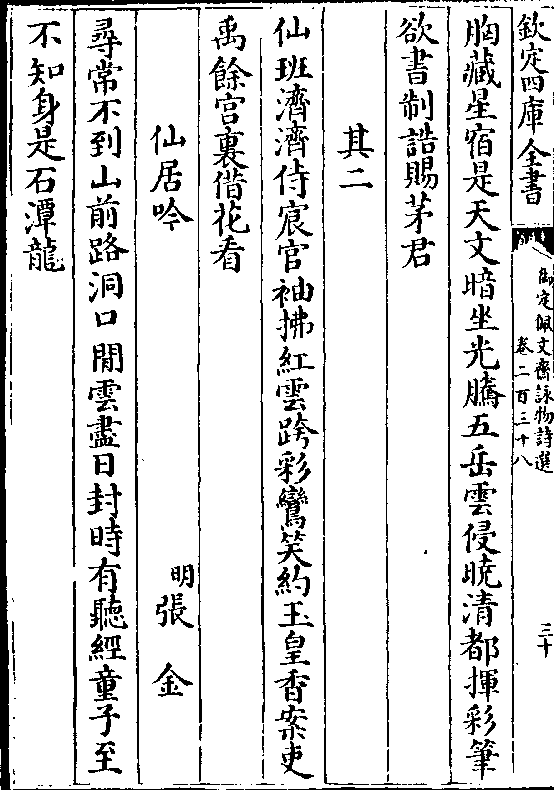 欽定四庫全書
御定佩文齋詠物詩選
卷二百三十八
三十
胸藏星宿是天文暗坐光騰五岳雲侵曉清都揮彩筆
欲書制誥賜茅君
其二
仙班濟濟侍宸官袖拂紅雲跨彩鸞笑約玉皇香案吏
禹餘宮裏借花看
仙居吟
明張金
尋常不到山前路洞口閒雲盡日封時有聽經童子至
不知身是石潭龍